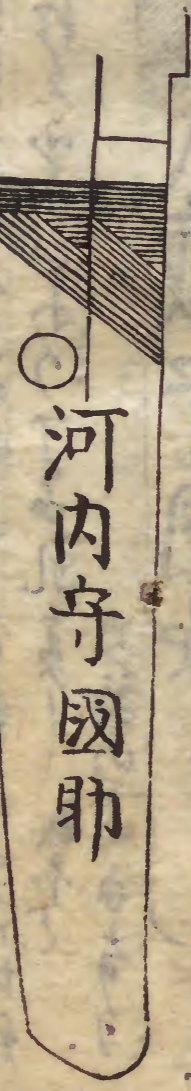 河内守國助